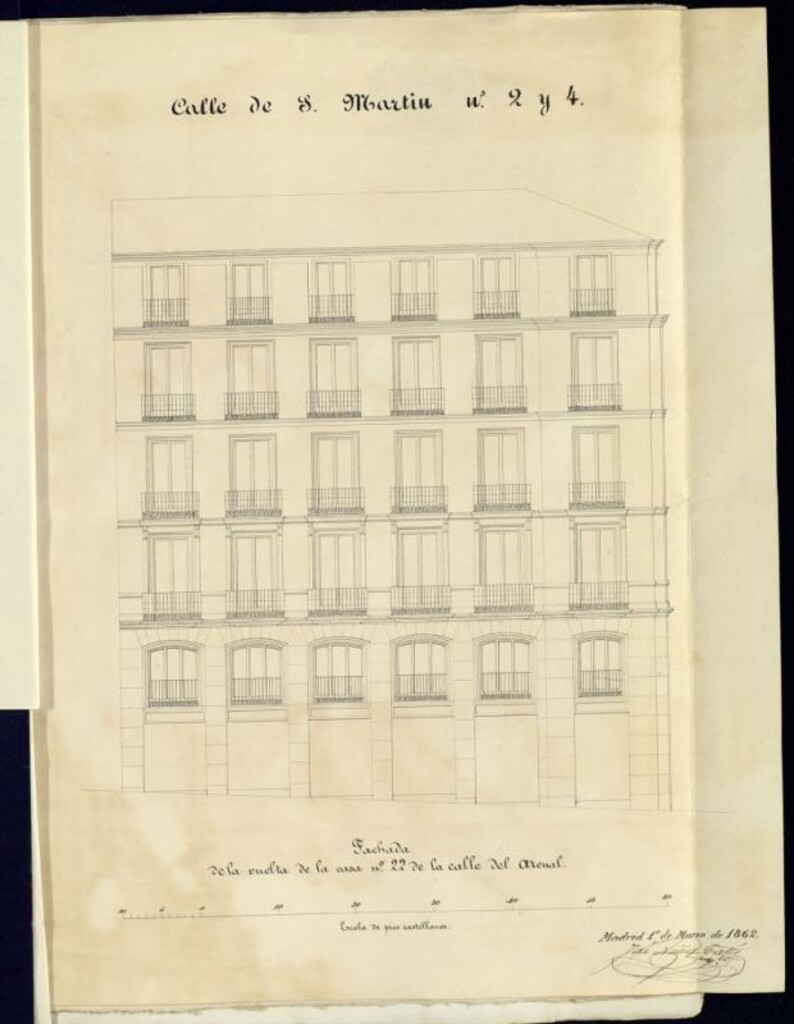 Calle de S. Martin nº 2 y 4.
Fachada
de la vuelta de la casa nº 22 de la calle del Arenal.
10 5 0 10 20 30 40 50 60
Escala de pies castellanos.
Madrid 1º de Marzo de 1862.